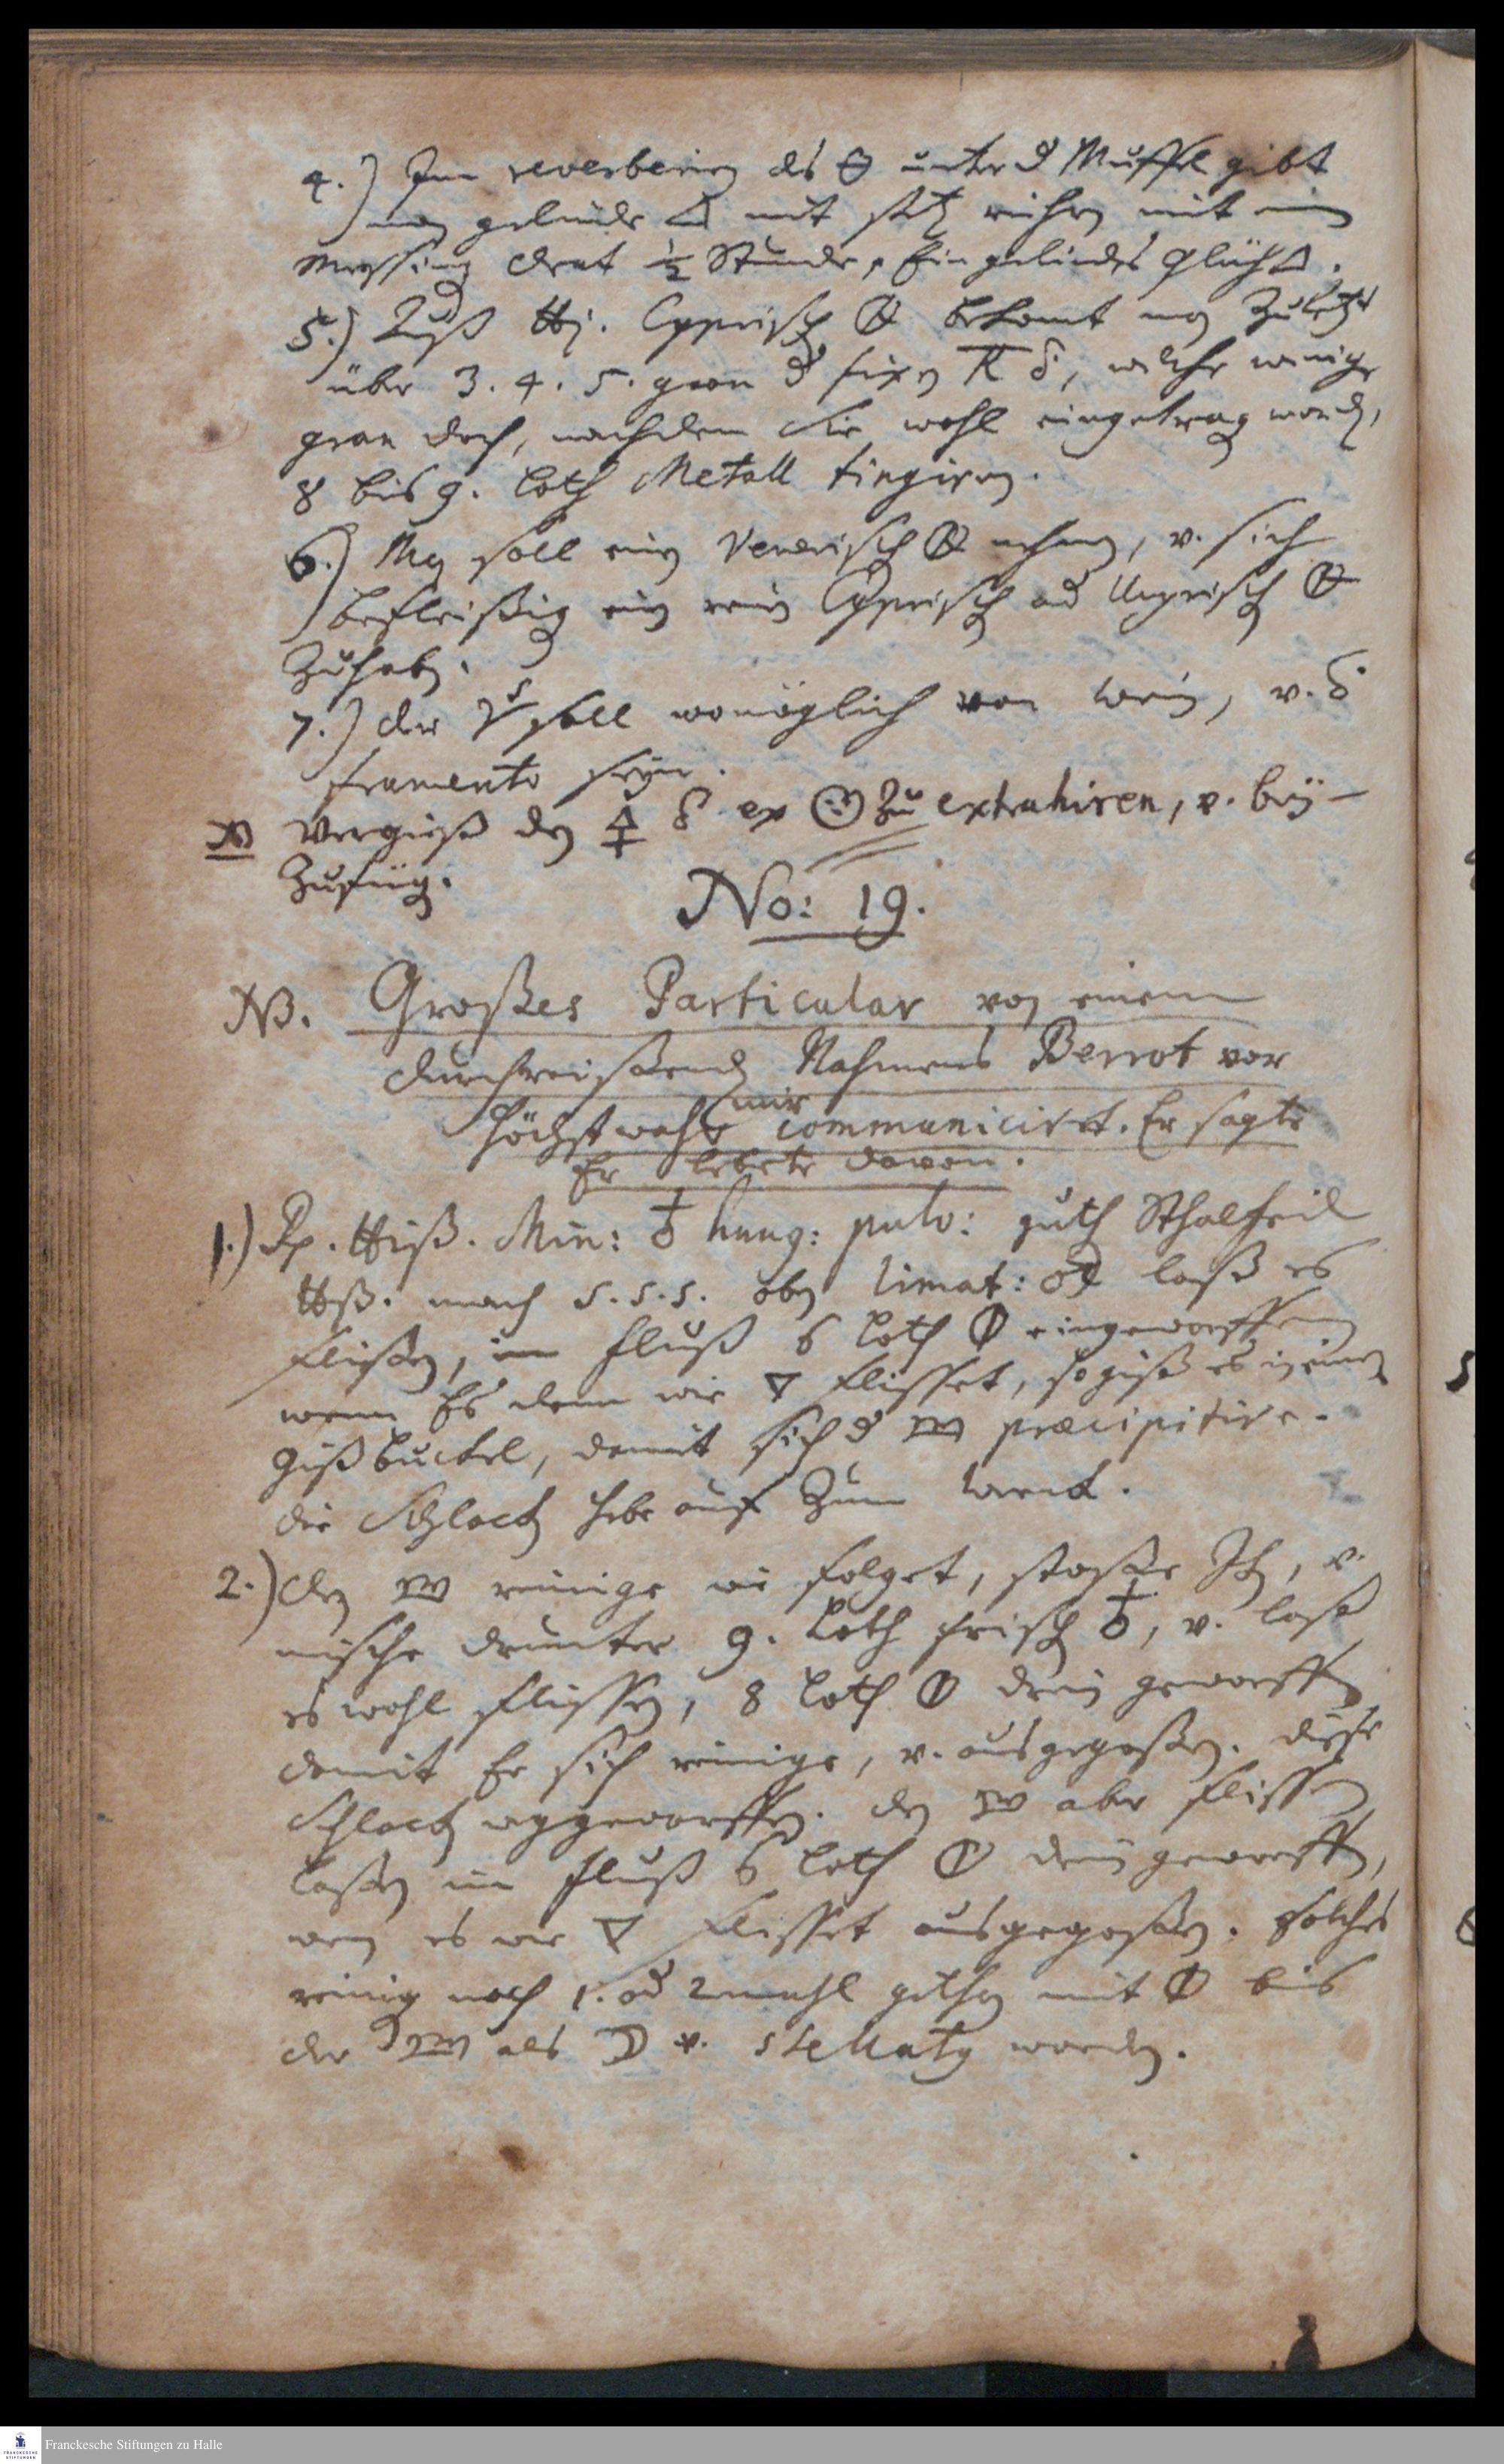 4.) Im reverberiren des 🜔 unter d Muffel gibt
man gelinde 🜂 mit stetem rühren mit einem
Messing drat ½ Stunde, Ein gelindes Glüh🜂.
5.) Auß ℔j. Cyprisch 🜖 bekomt man zuletzt
über 3. 4. 5. gran d fixen, welche wenige
gran doch, nachdem sie wohl eingetragen worden,
8 bis 9. loth Metall tingiren.
6.) Man soll ein Venerisch 🜖 nehmen, v. sich
befleißigen ein rein Cyprisch od Ungrisch 🜖
zuhaben.
7.) der soll womöglich von wein, v.
framento seyn.
NB Vergieß den 🜍 ex zu extrahiren, v. bey-
zufügen.
No: 19.
NB. Großes Particular von einem
durchreißenden Nahmens Berrot vor
höchst wahr mir communiciret. Er sagte
Er lebete davon.
1.) Rp. ℔iß. Min: ♁ hung: pulv: guth Sthalfeil
℔ß. mach s.s.s. oben limat: laß es
flißen, im fluß 6 loth 🜕 eingeworffen
wenn Es denn wie 🜄 flisset, so giß es in einen
Gißbuckel, damit sich d præcipitire.
die Schlacken hebe auf zum.
2.) den reinige wie folget, stoße Ihn, v.
mische drunter 9. Loth frisch ♁, v. laß
es wohl flissen, 8 loth 🜕 drein geworffen
damit Er sich reinige, v. ausgegoßen. diese
Schlacken weggeworffen. den aber flissen
laßen im fluß 6 loth 🜕 drein geworffen,
wen es wie 🜄 flisset ausgegoßen. solches
reinigen noch 1. od 2mahl gethan mit 🜕 bis
der als ☽ v. stellatq worden.
Franckesche Stiftungen zu Halle